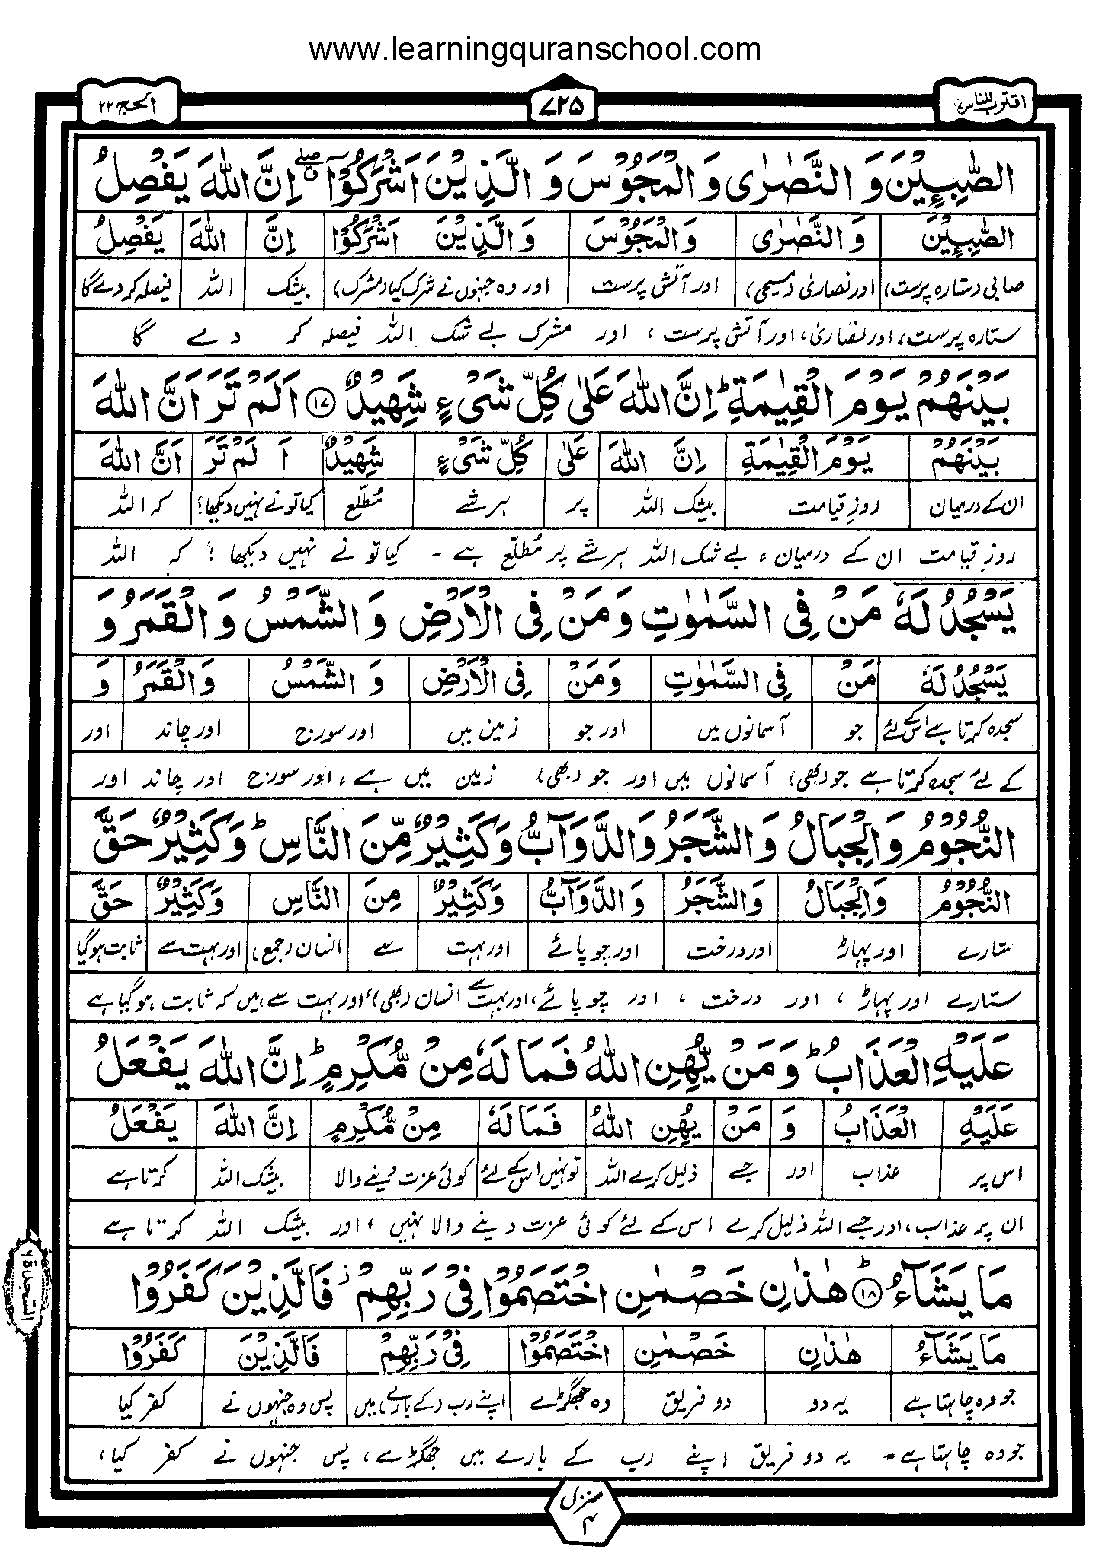 www.learningquranschool.com
اقترب للناس ۱۷ ۷۲۵ الحج ۲۲
الصّٰبِـِٕیْنَ وَ النَّصٰرٰی وَ الْمَجُوْسَ وَ الَّذِیْنَ اَشْرَکُوْۤا ۖۗ اِنَّ اللّٰهَ یَفْصِلُ
الصّٰبِـِٕیْنَ وَ النَّصٰرٰی وَ الْمَجُوْسَ وَ الَّذِیْنَ اَشْرَکُوْۤا اِنَّ اللّٰهَ یَفْصِلُ
صابی (ستارہ پرست) اور نصاریٰ (مسیحی) اور آتش پرست اور وہ جنہوں نے شرک کیا (مشرک) بیشک اللہ فیصلہ کردے گا
ستارہ پرست، اور نصاریٰ، اور آتش پرست، اور مشرک بے شک اللہ فیصلہ کر دے گا
بَیْنَهُمْ یَوْمَ الْقِیٰمَةِ ؕ اِنَّ اللّٰهَ عَلٰی کُلِّ شَیْءٍ شَهِیْدٌ ۱۷ اَلَمْ تَرَ اَنَّ اللّٰهَ
بَیْنَهُمْ یَوْمَ الْقِیٰمَةِ اِنَّ اللّٰهَ عَلٰی کُلِّ شَیْءٍ شَهِیْدٌ اَ لَمْ تَرَ اَنَّ اللّٰهَ
ان کے درمیان روزِ قیامت بیشک اللہ پر ہر شے مُطّلع کیا تو نے نہیں دیکھا؟ کہ اللہ
روزِ قیامت ان کے درمیان، بے شک اللہ ہر شے پر مُطّلع ہے۔ کیا تو نے نہیں دیکھا؟ کہ اللہ
یَسْجُدُ لَهٗ مَنْ فِی السَّمٰوٰتِ وَ مَنْ فِی الْاَرْضِ وَ الشَّمْسُ وَ الْقَمَرُ وَ
یَسْجُدُ لَهٗ مَنْ فِی السَّمٰوٰتِ وَ مَنْ فِی الْاَرْضِ وَ الشَّمْسُ وَ الْقَمَرُ وَ
سجدہ کرتا ہے اس کے لئے جو آسمانوں میں اور جو زمین میں اور سورج اور چاند اور
کے لئے سجدہ کرتا ہے جو (بھی) آسمانوں میں اور جو (بھی) زمین میں ہے، اور سورج اور چاند اور
النُّجُوْمُ وَ الْجِبَالُ وَ الشَّجَرُ وَ الدَّوَآبُّ وَ کَثِیْرٌ مِّنَ النَّاسِ ؕ وَ کَثِیْرٌ حَقَّ
النُّجُوْمُ وَ الْجِبَالُ وَ الشَّجَرُ وَ الدَّوَآبُّ وَ کَثِیْرٌ مِنَ النَّاسِ وَ کَثِیْرٌ حَقَّ
ستارے اور پہاڑ اور درخت اور چوپائے اور بہت سے انسان (جمع) اور بہت سے ثابت ہوگیا
ستارے اور پہاڑ، اور درخت، اور چوپائے، اور بہت سے انسان (بھی) اور بہت سے ہیں کہ ثابت ہوگیا ہے
عَلَیْهِ الْعَذَابُ ؕ وَ مَنْ یُّهِنِ اللّٰهُ فَمَا لَهٗ مِنْ مُّکْرِمٍ ؕ اِنَّ اللّٰهَ یَفْعَلُ
عَلَیْهِ الْعَذَابُ وَ مَنْ یُهِنِ اللّٰهُ فَمَا لَهٗ مِنْ مُّکْرِمٍ اِنَّ اللّٰهَ یَفْعَلُ
اس پر عذاب اور جسے ذلیل کرے اللہ تو نہیں اس کے لئے کوئی عزت دینے والا بیشک اللہ کرتا ہے
ان پر عذاب، اور جسے اللہ ذلیل کرے اس کے لئے کوئی عزت دینے والا نہیں، اور بیشک اللہ کرتا ہے
مَا یَشَآءُ ؕ ۱۸ هٰذٰنِ خَصْمٰنِ اخْتَصَمُوْا فِیْ رَبِّهِمْ ؗ فَالَّذِیْنَ کَفَرُوْا
السجدة ٦
مَا یَشَآءُ هٰذٰنِ خَصْمٰنِ اخْتَصَمُوْا فِیْ رَبِّهِمْ فَالَّذِیْنَ کَفَرُوْا
جو وہ چاہتا ہے یہ دو دو فریق وہ جھگڑے اپنے رب (کے بارے) میں پس وہ جنہوں نے کفر کیا
جو وہ چاہتا ہے۔ یہ دو فریق اپنے رب کے بارے میں جھگڑے، پس جنہوں نے کفر کیا،
منزل
۴